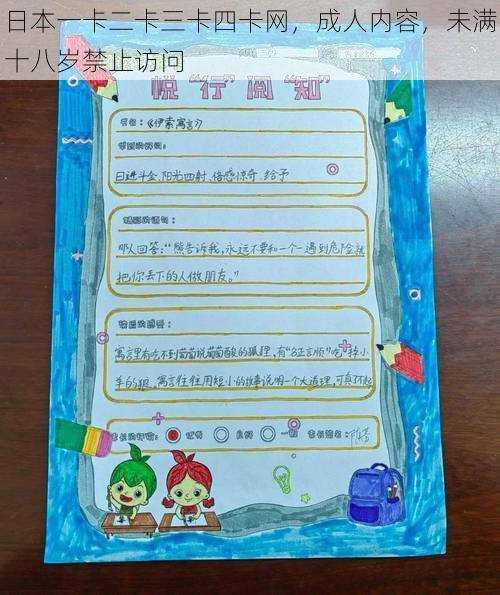 日本一卡二卡三卡四卡网，成人内容，未满
十八岁禁止访问
悦“行”阅“知”
书名：《伊索寓言》
日进斗金、阳光四射、倍感惊奇、给予
那人回答：“熊告诉我，永远不要和一个一遇到危险就
把你丢下的人做朋友。”
读后的感受：
寓言里有吃不到葡萄说葡萄酸的狐狸，有“名正言顺”吃掉小
羊的狼，寓言往往用短小的故事说明一个大道理，可真不起
家长的评价：优秀 良好 一般 家长签名：